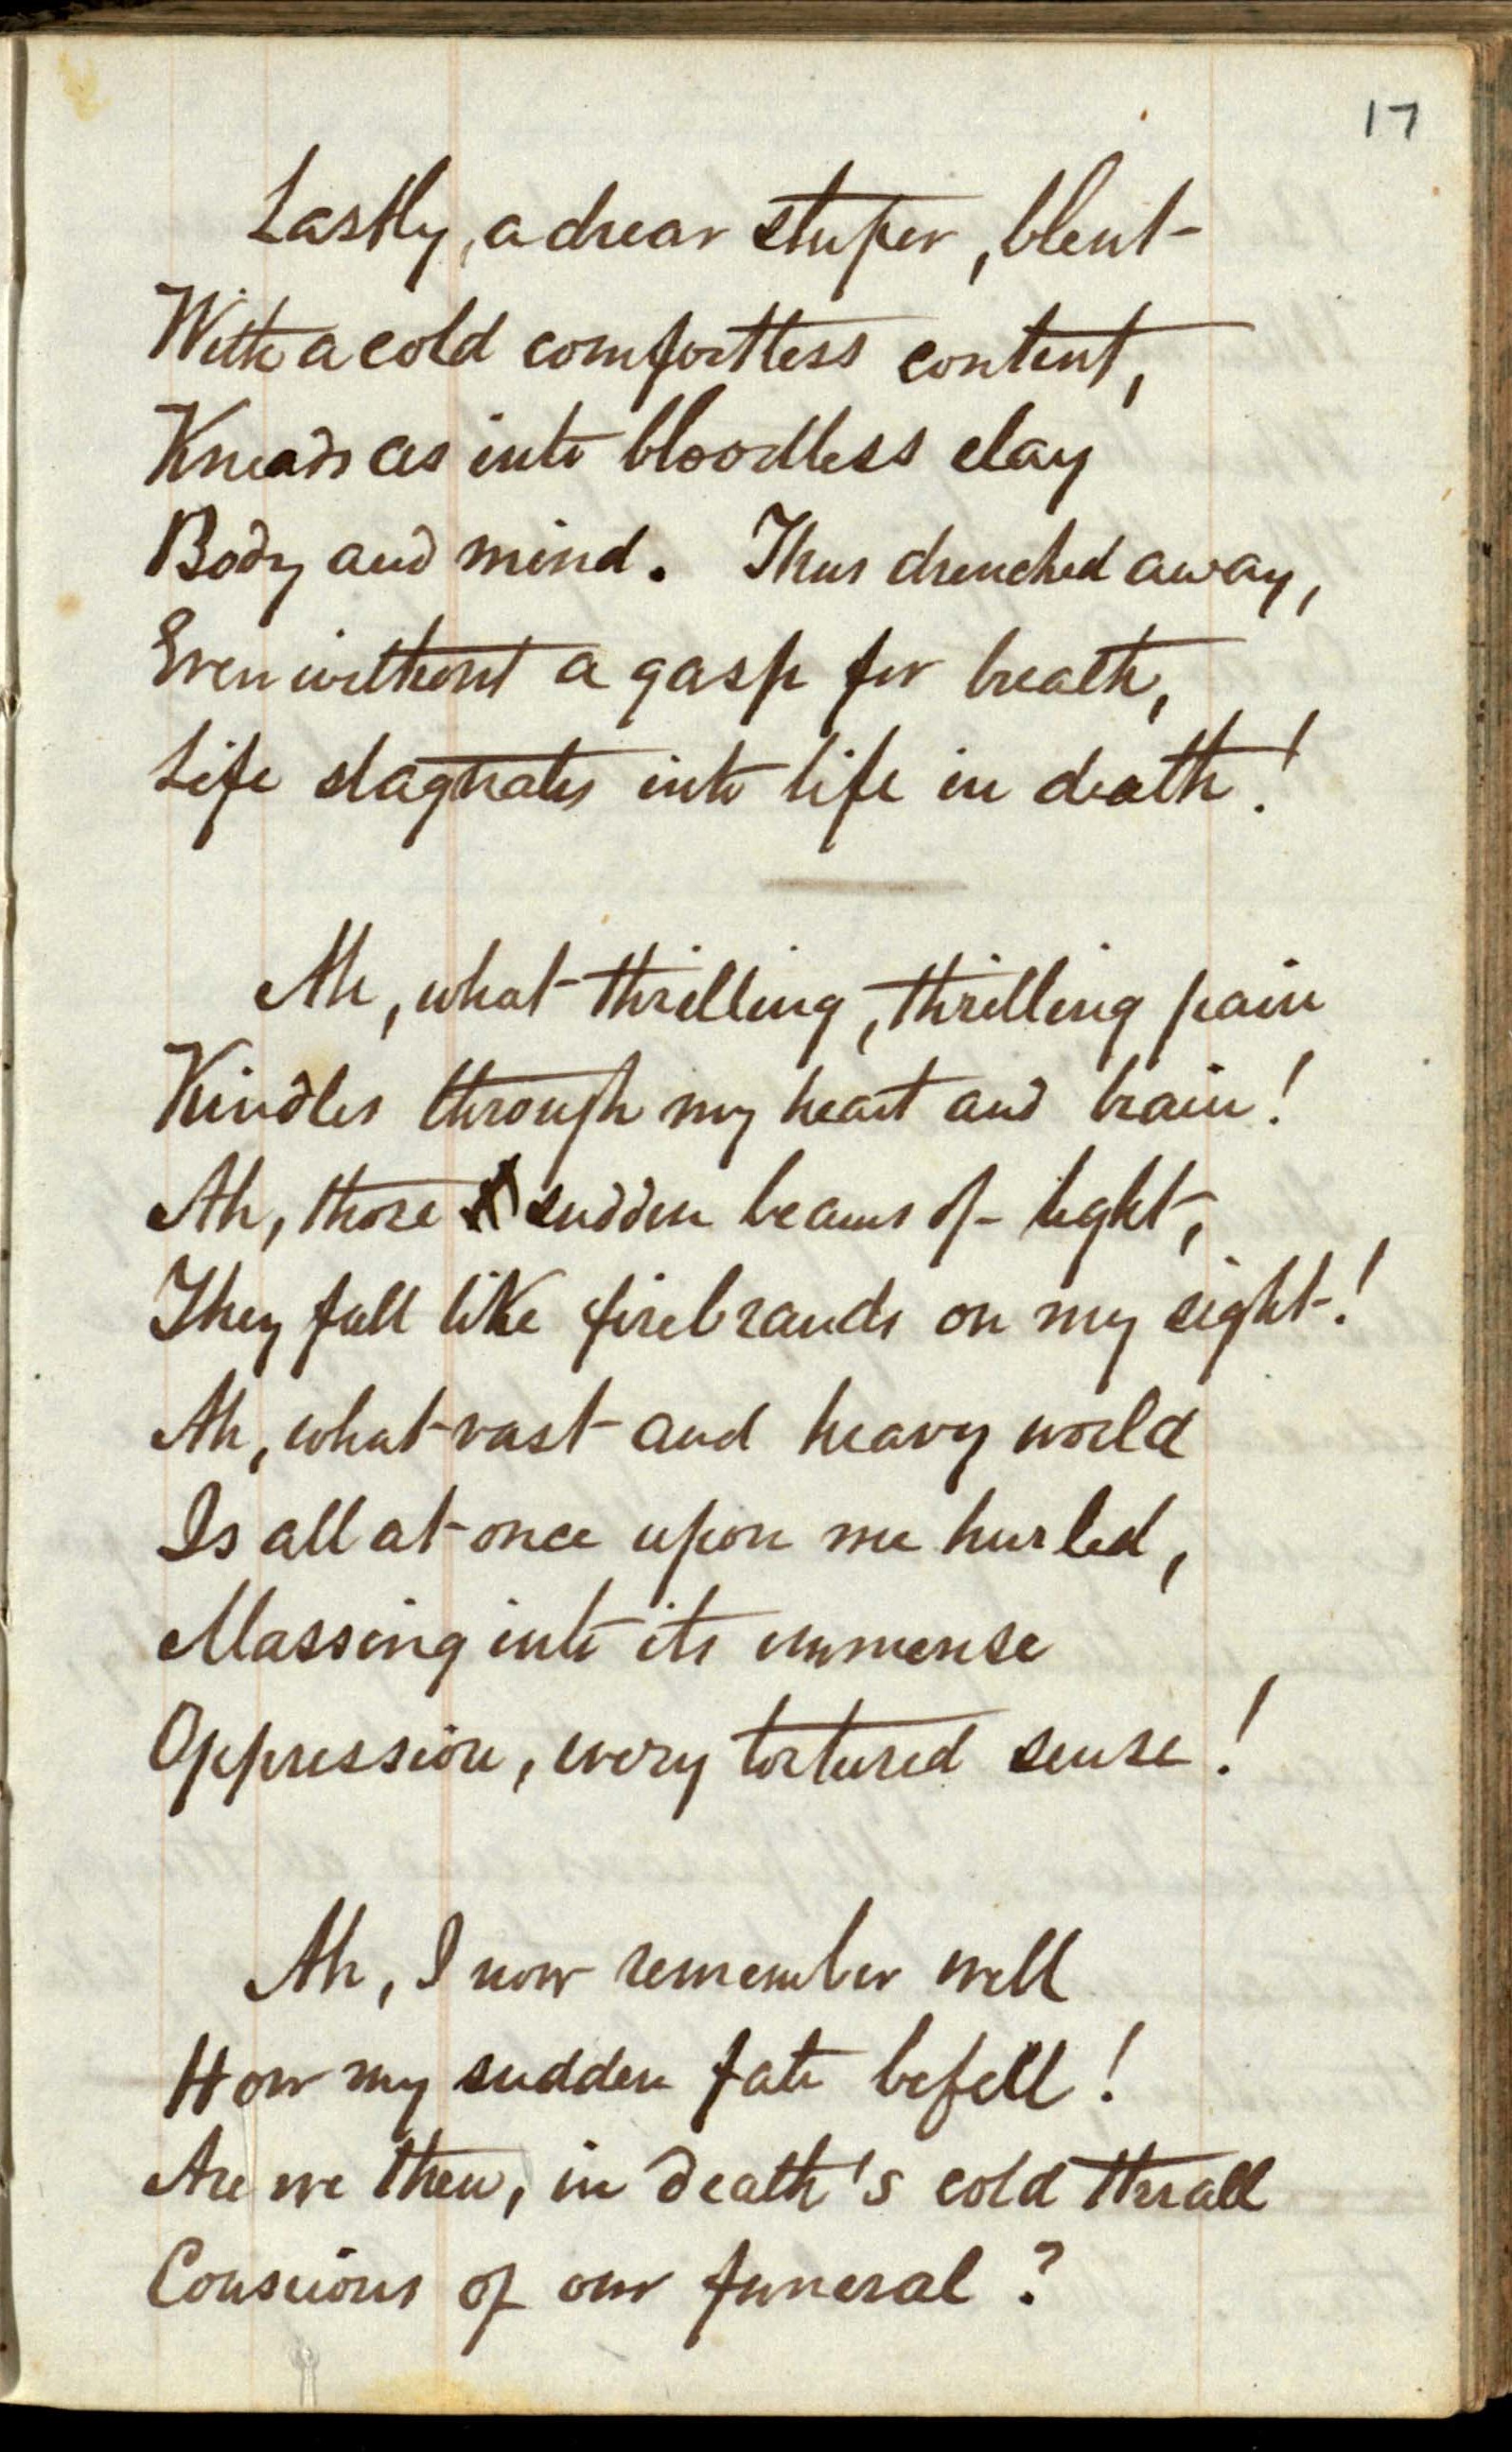 17
Lastly, a drear stuper, blent
With a cold comfortless content,
Kneads as into bloodless clay
Body and mind. Thus drenched away,
Even without a gasp for breath,
Life stagnates into life in death!
Ah, what thrilling, thrilling pain
Kindles through my heart and brain!
Ah, those sudden beams of light,
They fall like firebrands on my sight!
Ah, what vast and heavy world
Is all at once upon me hurled,
Massing into its immense
Oppression, every tortured sense!
Ah, I now remember well
How my sudden fate befell!
Are we then, in death's cold thrall
Conscious of our funeral?